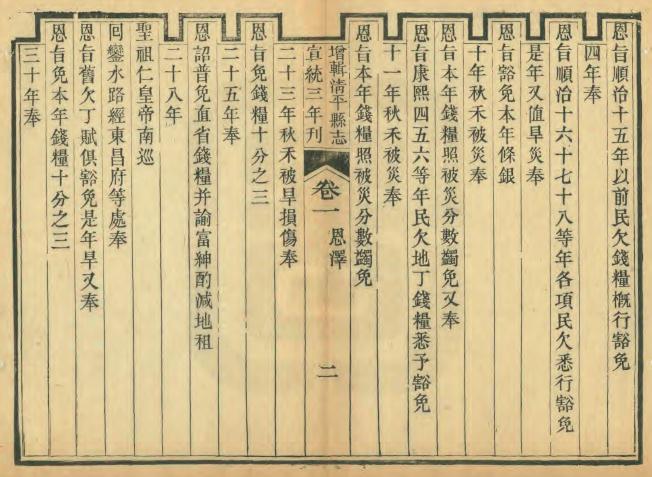 恩旨順治十五年以前民欠錢糧槪行豁免
四年奉
恩旨順治十六十七十八等年各項民欠悉行豁免
是年又值旱災奉
恩旨豁免本年條銀
十年秋禾被災奉
恩旨本年錢糧照被災分數蠲免又奉
恩旨康熙四五六等年民欠地丁錢糧悉予豁免
十一年秋禾被災奉
恩旨本年錢糧照被災分數蠲免
增輯清平縣志
宣統三年刊
卷一
恩澤
二
二十三年秋禾被旱損傷奉
恩旨免錢糧十分之三
二十五年奉
恩詔普免直省錢糧并諭富紳酌減地租
二十八年
聖祖仁皇帝南巡
回鑾水路經東昌府等處奉
恩旨舊欠丁賦俱豁免是年旱又奉
恩旨免本年錢糧十分之三
三十年奉